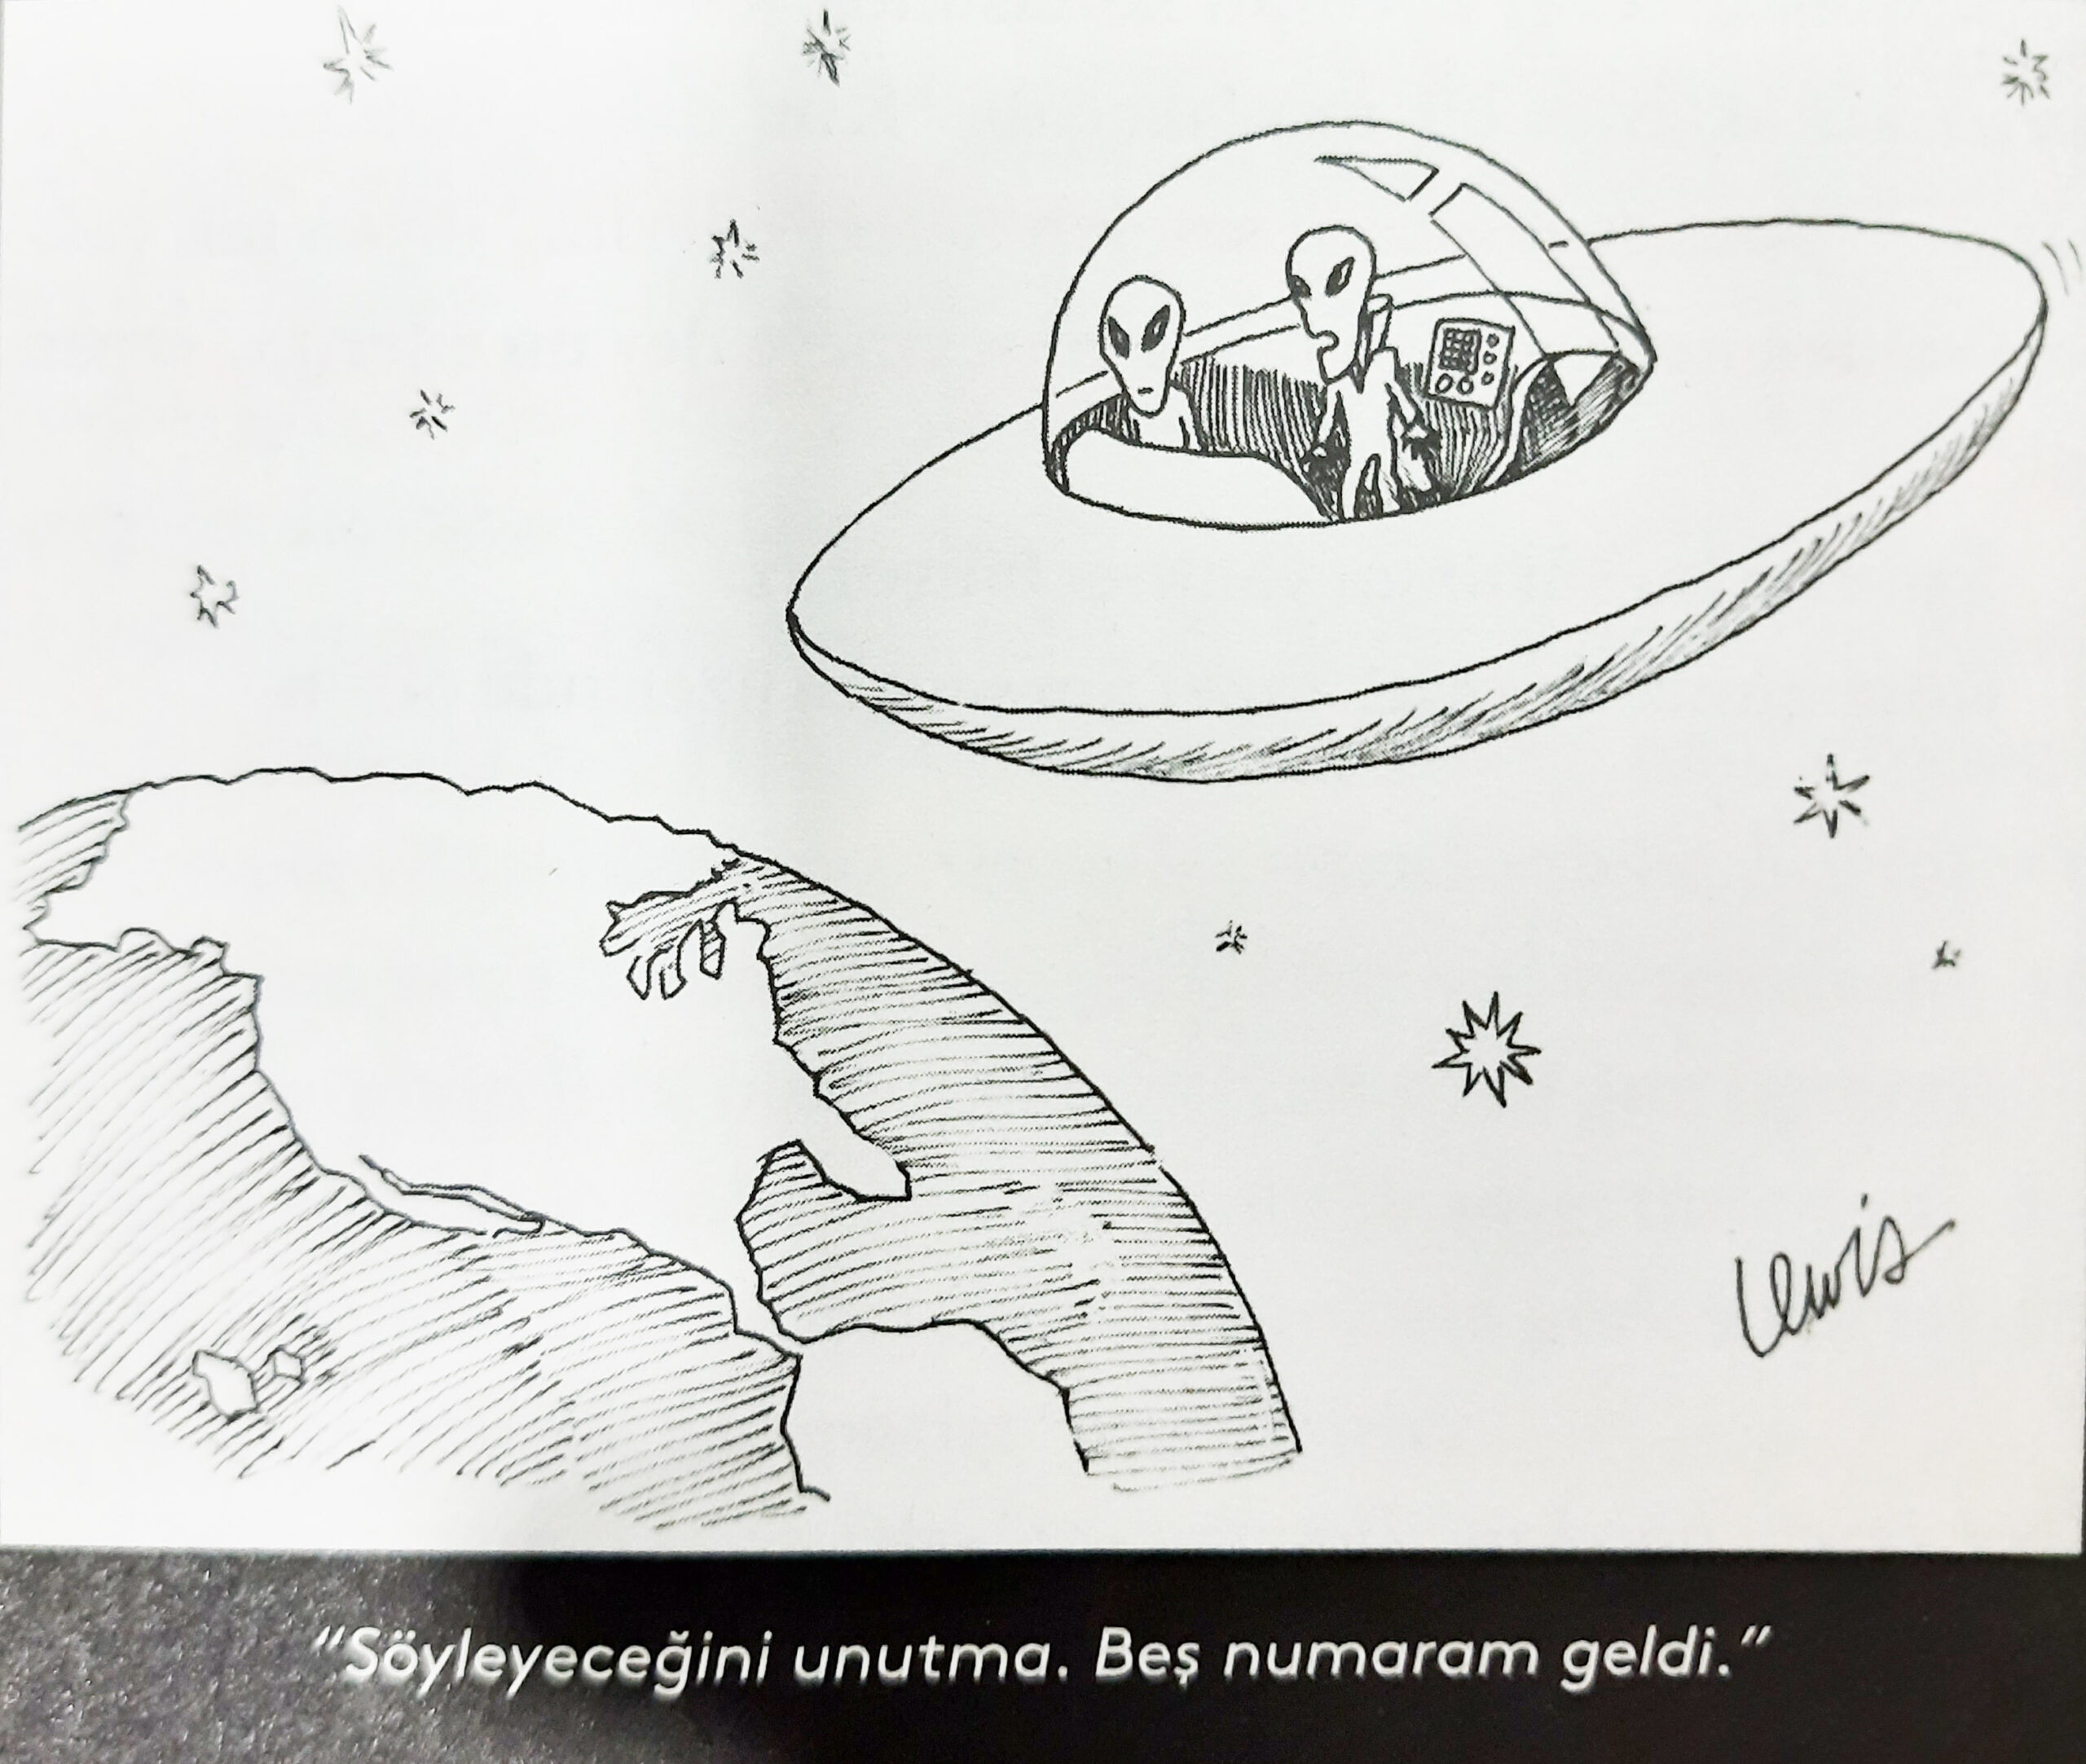 Lewis
"Söyleyeceğini unutma. Beş numaram geldi."